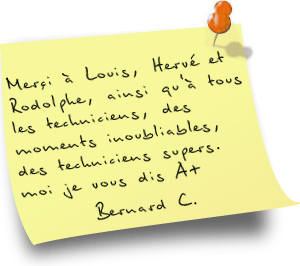 Merçi à Louis, Hervé et
Rodolphe, ainsi qu'à tous
les techniciens, des
moments inoubliables,
des techniciens supers.
moi je vous dis A+
Bernard C.